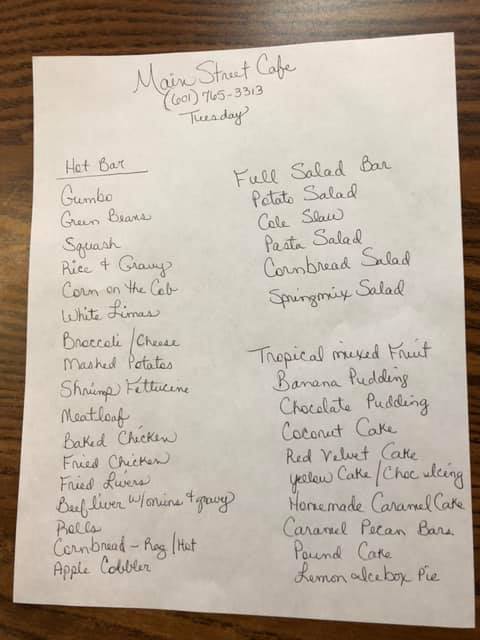 Main Street Cafe
(601) 765-3313
Tuesday
Hot Bar
Gumbo
Green Beans
Squash
Rice & Gravy
Corn on the Cob
White Limas
Broccoli/Cheese
Mashed Potatoes
Shrimp Fettucine
Meatloaf
Baked Chicken
Fried Chicken
Fried Livers
Beef liver w/onions & gravy
Rolls
Cornbread - Reg/Hot
Apple Cobbler
Full Salad Bar
Potato Salad
Cole Slaw
Pasta Salad
Cornbread Salad
Springmix Salad
Tropical mixed Fruit
Banana Pudding
Chocolate Pudding
Coconut Cake
Red Velvet Cake
yellow Cake/Choc icing
Homemade Caramel Cake
Caramel Pecan Bars
Pound Cake
Lemon icebox Pie